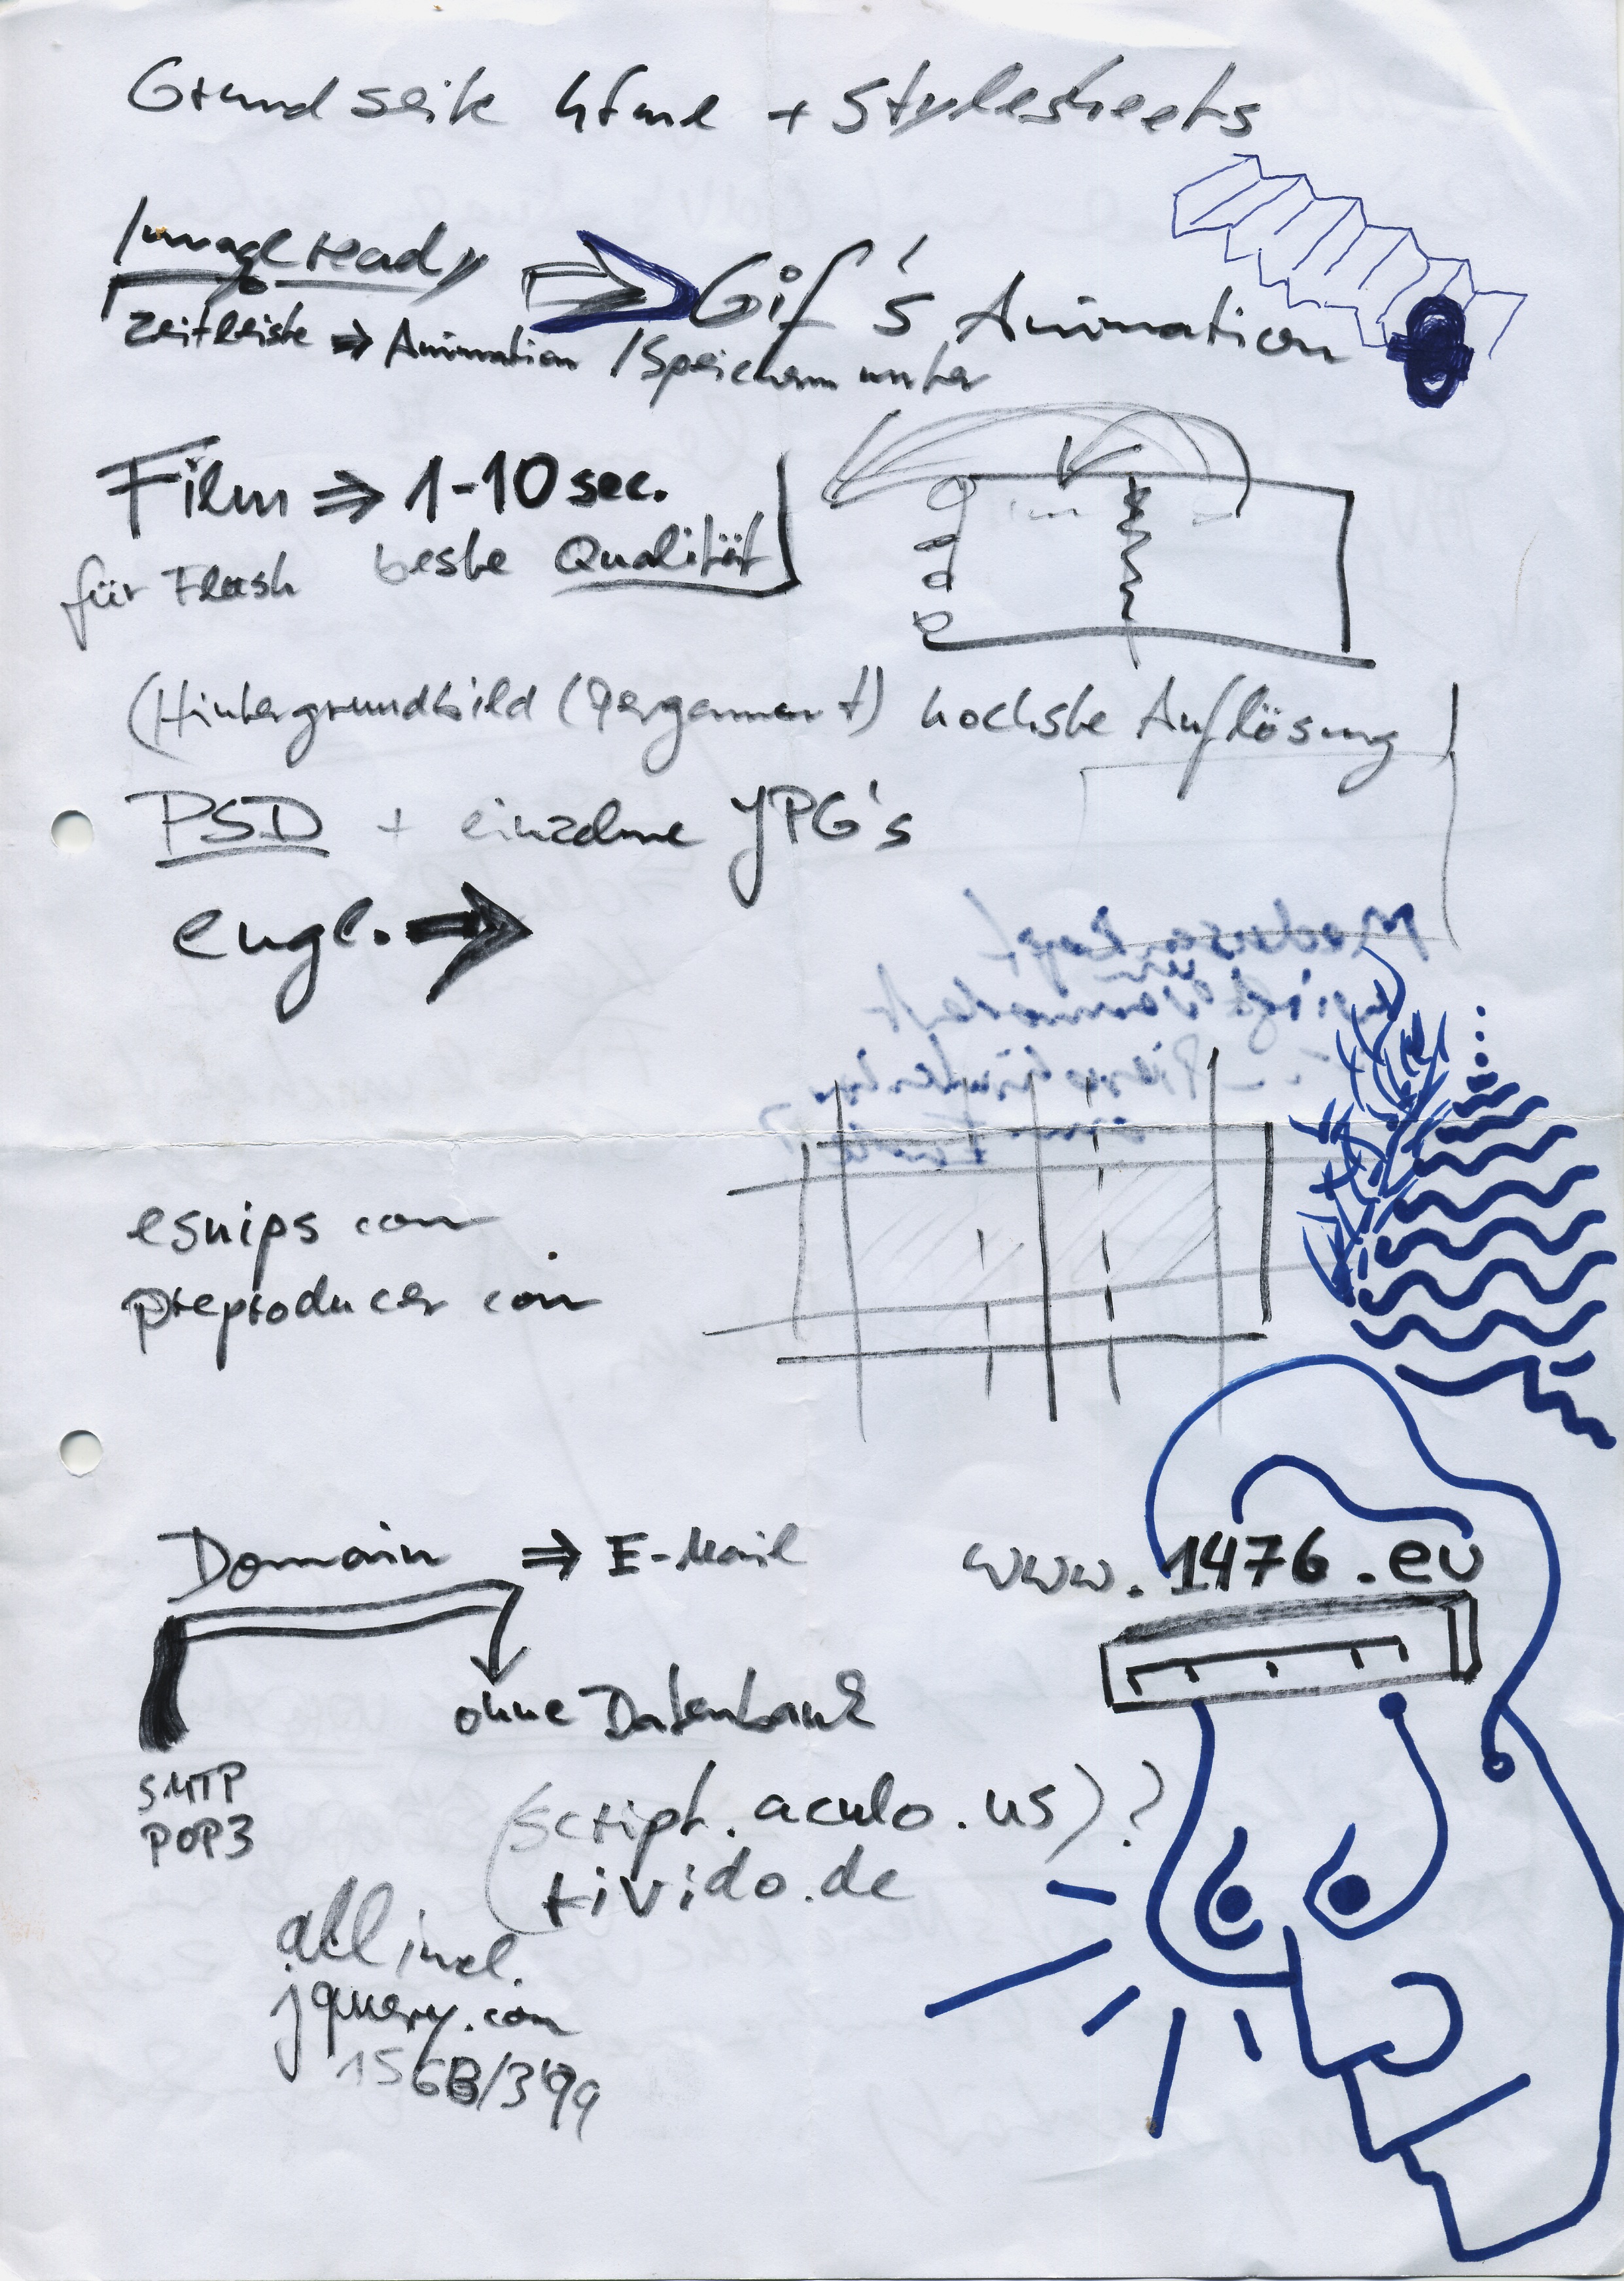 Grundseite html + Stylesheets
Imageready ⇒ Gif's Animation
Zeitleiste ⇒ Animation / Speichern unter
Film ⇒ 1-10 sec.
für Flash beste Qualität
(Hintergrundbild (Pergament) hochste Auflösung
PSD + einzelne JPG's
engl. →
esnips com
preproducer com
Domain ⇒ E-Mail
www.1476.eu
ohne Datenbank
SMTP
POP3
(script.aculo.us)?
tivido.de
all incl.
jquery.com
15GB/3'99